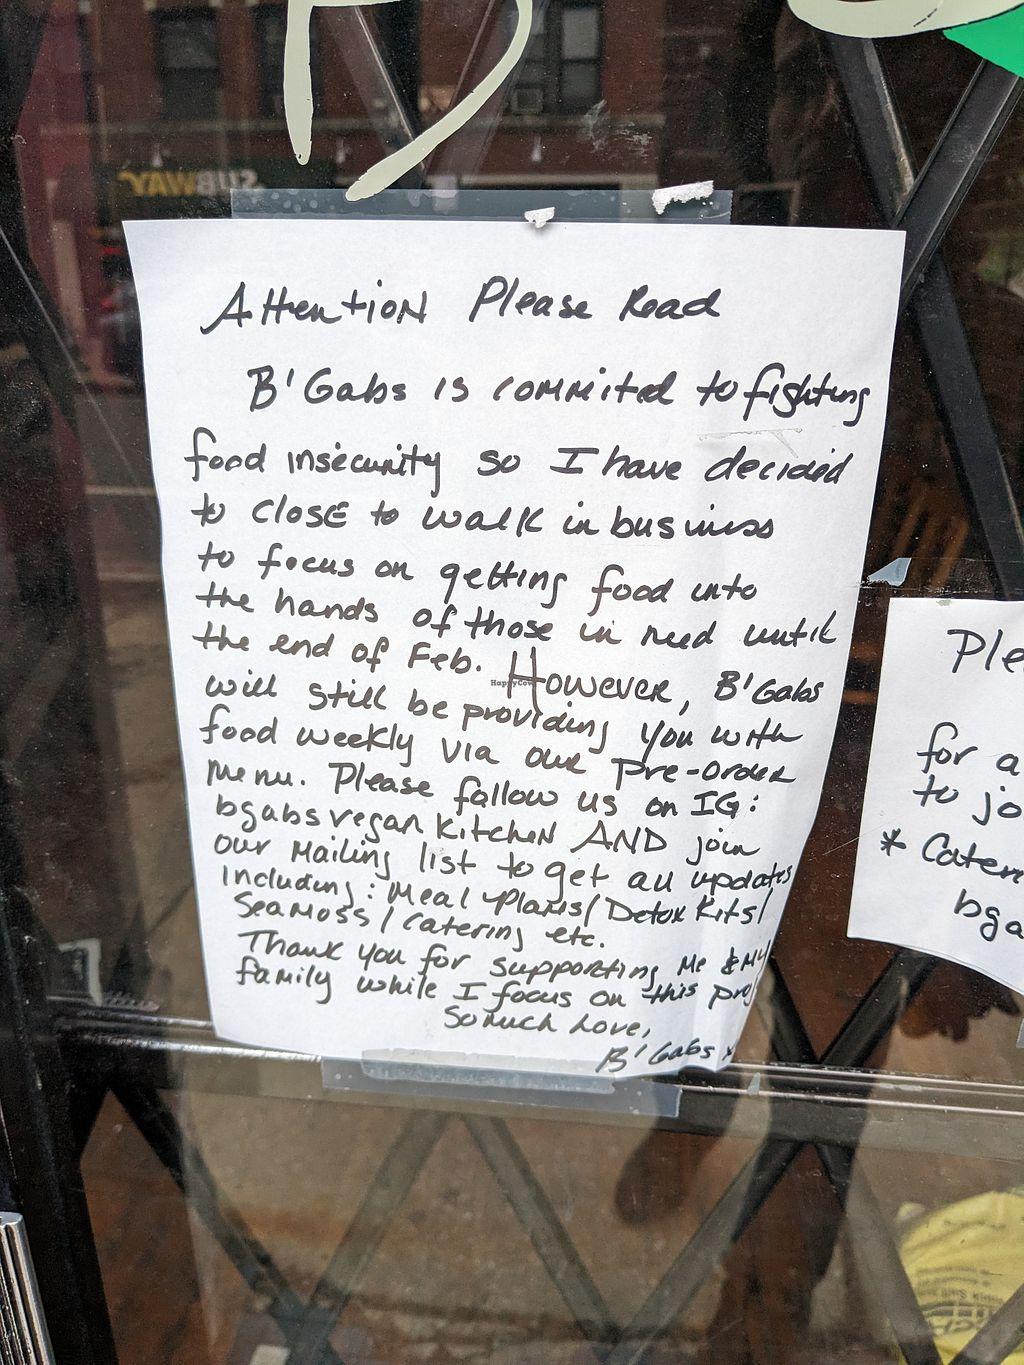 SUBWAY
Attention Please Read
B'Gabs is commited to fighting
food insecurity so I have decided
to close to walk in business
to focus on getting food into
the hands of those in need until
the end of Feb. However, B'Gabs
will still be providing you with
food weekly via our pre-order
menu. Please follow us on IG:
bgabsvegankitchen AND join
our mailing list to get all updates
including: Meal Plans/Detox Kits/
Seamoss/catering etc.
Thank you for supporting me & my
family while I focus on this
So much love,
B'Gabs
HappyCow
Ple
for a
to jo
* Cater
bga